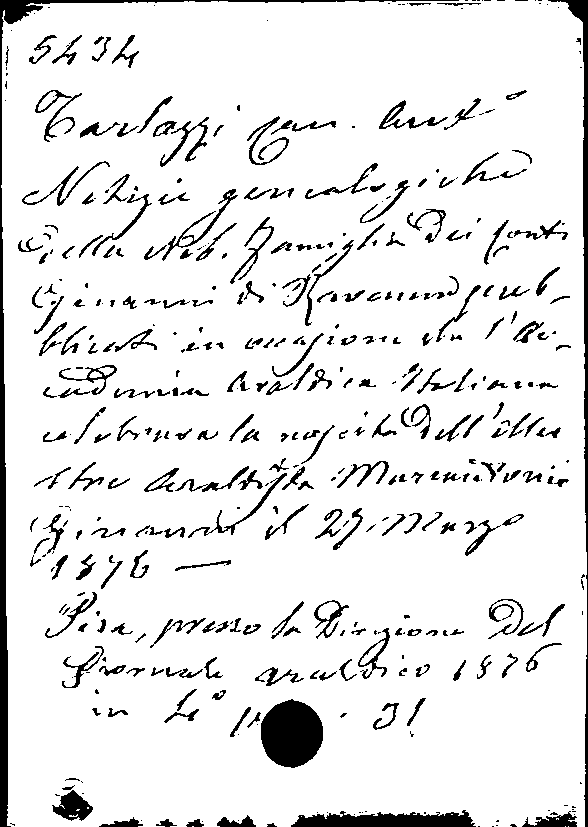 5434
Tarlazzi can. Ant°
Notizie genealogiche
della Nob. famiglia dei Conti
Ginanni di Ravenna pub-
blicati in occasione che l'Ac-
cademia Araldica Italiana
celebrava la nascita dell'illu
stre Araldista Marcantonio
Ginanni il 27 Marzo
1876 —
Pisa, presso la Direzione del
Giornale araldico 1876
in 4° 31